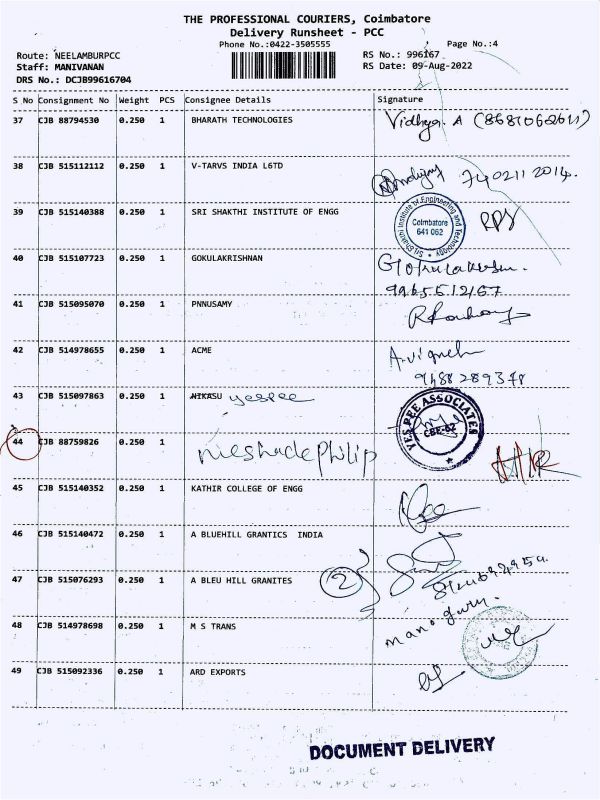 THE PROFESSIONAL COURIERS, Coimbatore
Delivery Runsheet - PCC
Phone No.:0422-3505555
Page No.:4
Route: NEELAMBURPCC
RS No.: 996167
Staff: MANIVANAN
RS Date: 09-Aug-2022
DRS No.: DCJB99616704
S No Consignment No Weight PCS Consignee Details Signature
37 CJB 88794530 0.250 1 BHARATH TECHNOLOGIES Vidhya. A
38 CJB 515112112 0.250 1 V-TARVS INDIA L6TD 740211 2014.
39 CJB 515140388 0.250 1 SRI SHAKTHI INSTITUTE OF ENGG
Sri Shakthi Institute of Engineering and Technology
Coimbatore
641 062
40 CJB 515107723 0.250 1 GOKULAKRISHNAN Gokulakrishnan.
9965512167
41 CJB 515095070 0.250 1 PNNUSAMY
42 CJB 514978655 0.250 1 ACME A.vignesh
9488289378
43 CJB 515097863 0.250 1 NIKASU yespee
YES PEE ASSOCIATES
CBE-62
44 CJB 88759826 0.250 1 nieshadephilip
45 CJB 515140352 0.250 1 KATHIR COLLEGE OF ENGG
46 CJB 515140472 0.250 1 A BLUEHILL GRANTICS INDIA
47 CJB 515076293 0.250 1 A BLEU HILL GRANITES 2
48 CJB 514978698 0.250 1 M S TRANS
49 CJB 515092336 0.250 1 ARD EXPORTS
DOCUMENT DELIVERY